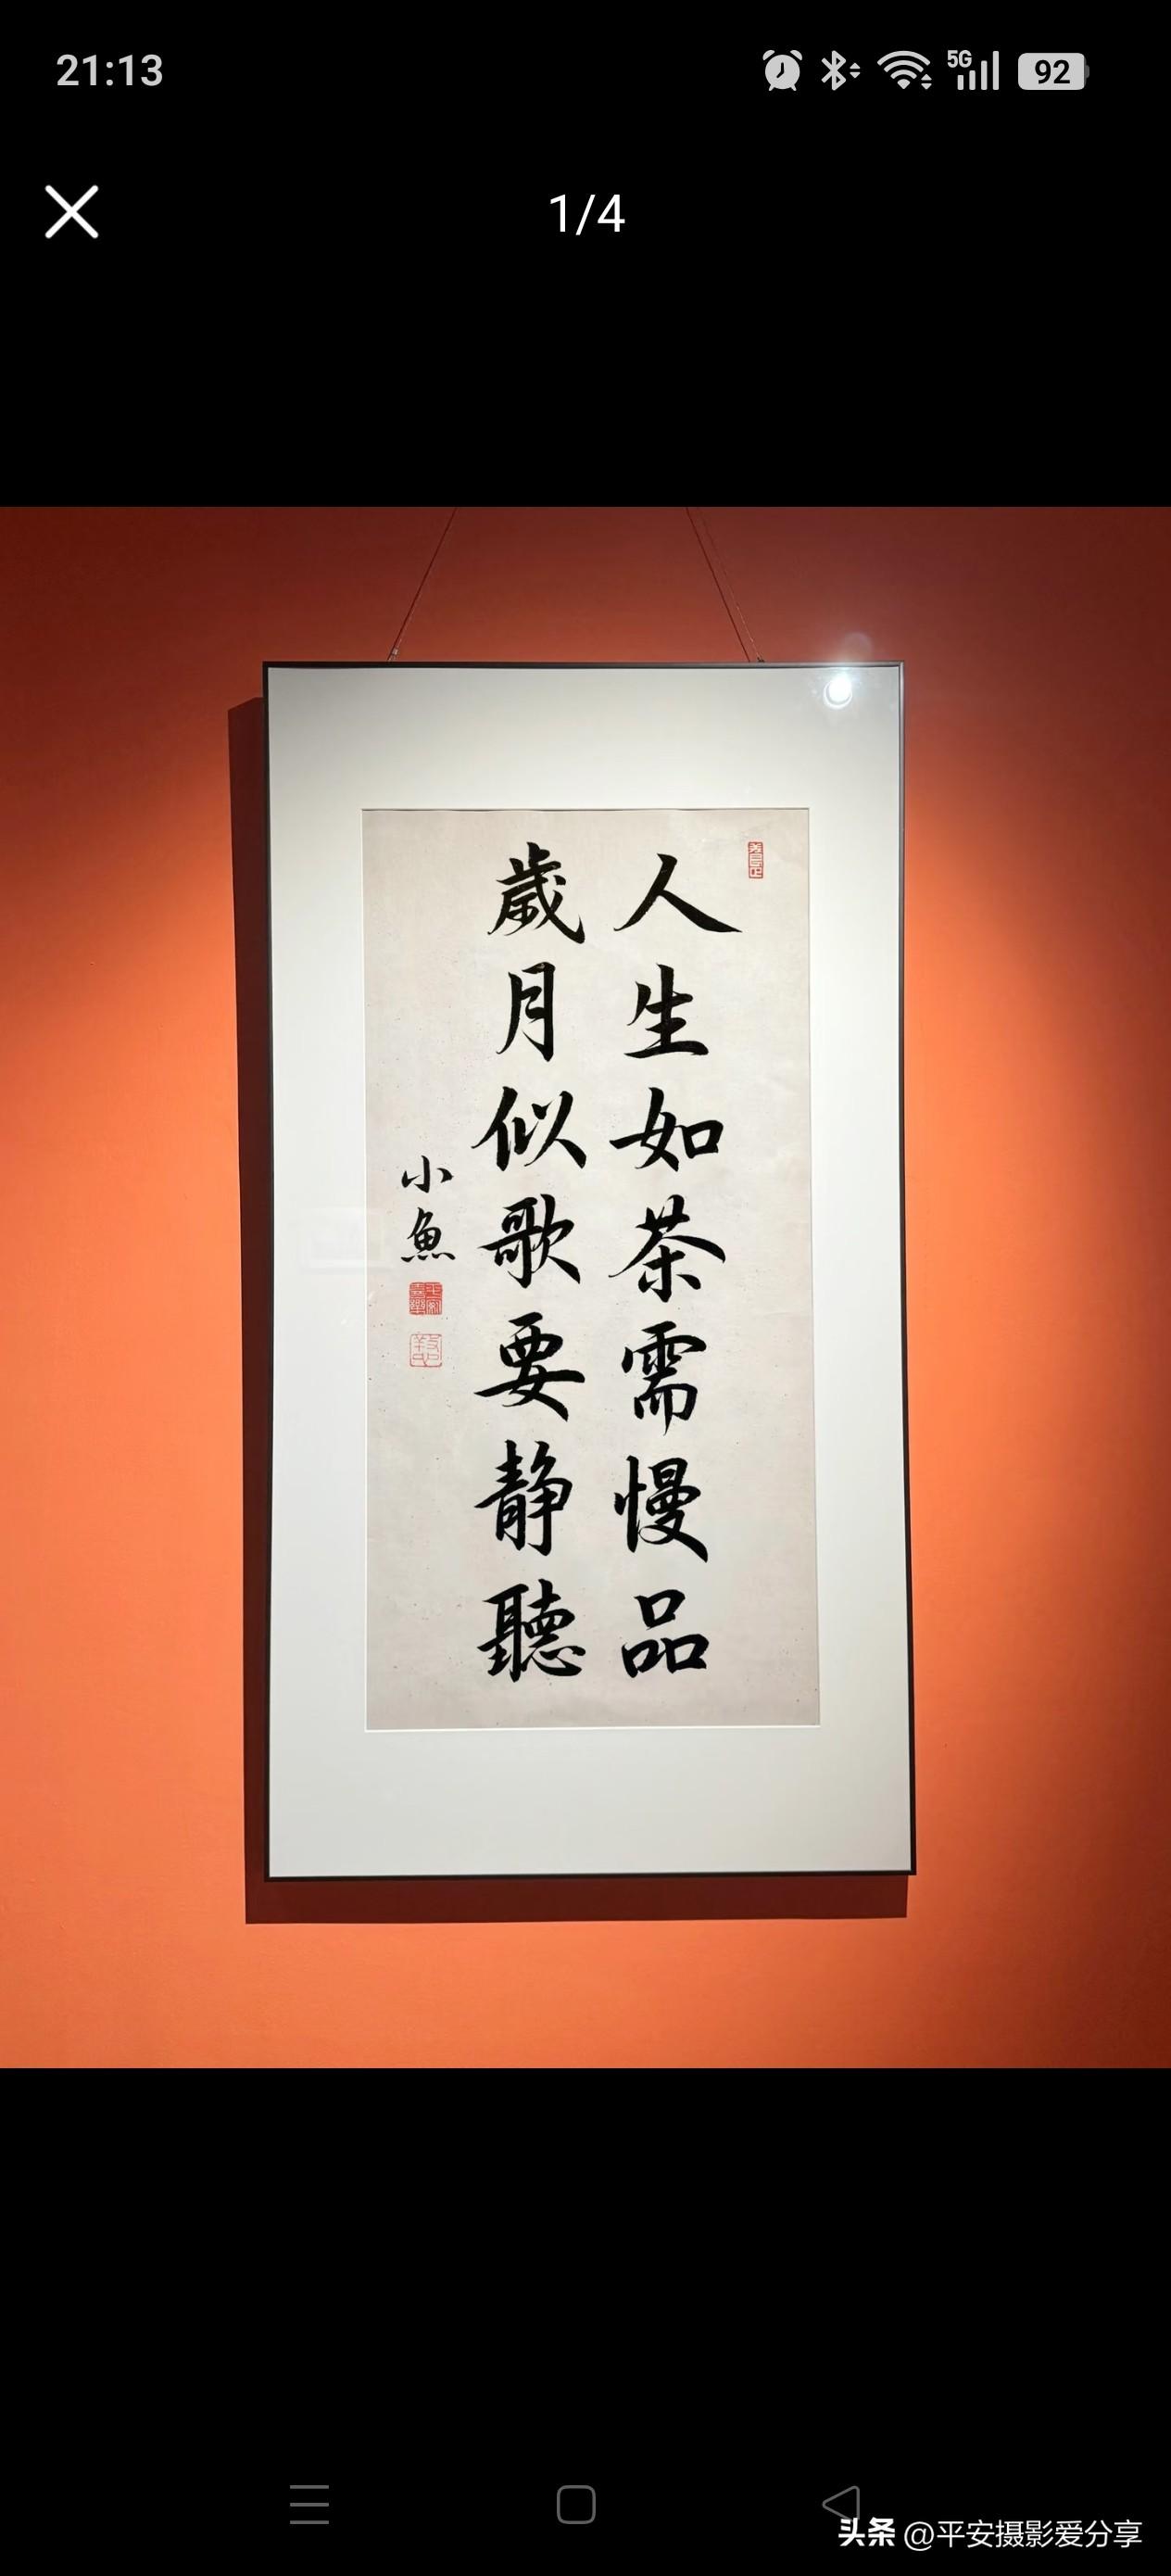 21:13
5G
92
1/4
人生如茶需慢品
歲月似歌要静聽
小魚
头条 @平安摄影爱分享